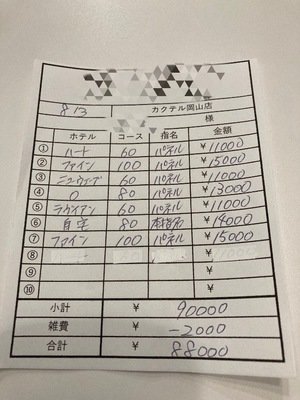 8/3 カクテル岡山店
様
ホテル コース 指名 金額
① ハート 60 パネル ¥11000
② ファイン 100 パネル ¥15000
③ ニューウェーブ 60 パネル ¥11000
④ O 80 パネル ¥13000
⑤ ラヴィアン 60 パネル ¥11000
⑥ 自宅 80 本指名 ¥14000
⑦ ファイン 100 パネル ¥15000
⑧
⑨
⑩
小計 ¥ 90000
雑費 ¥ -2000
合計 ¥ 88000